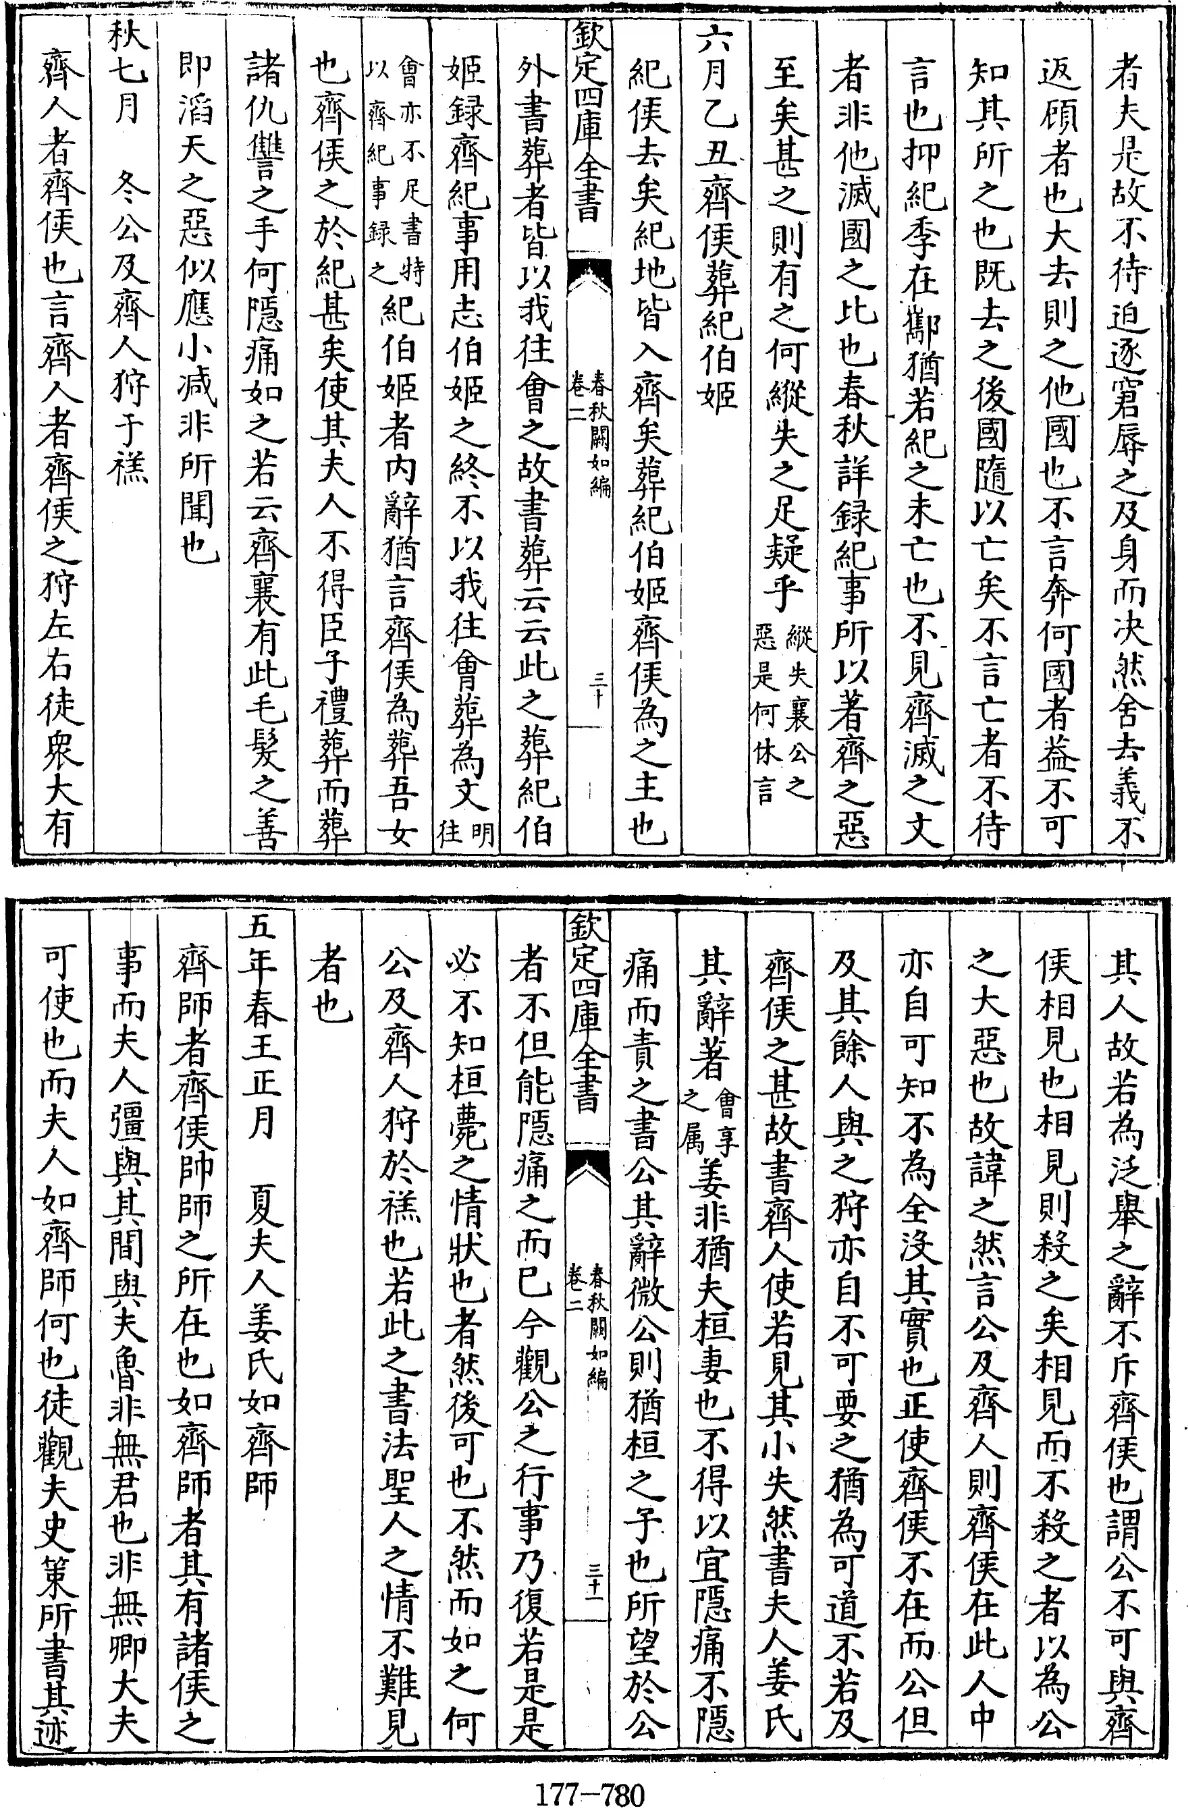 者夫是故不待迫逐窘辱之及身而決然舍去義不
返顧者也大去則之他國也不言奔何國者葢不可
知其所之也既去之後國隨以亡矣不言亡者不待
言也抑紀季在酅猶若紀之未亡也不見齊滅之文
者非他滅國之比也春秋詳録紀事所以著齊之惡
至矣甚之則有之何縱失之足疑乎縱失襄公之惡是何休言
六月乙丑齊侯葬紀伯姬
紀侯去矣紀地皆入齊矣葬紀伯姬齊侯為之主也
欽定四庫全書
春秋闕如編
卷二
三十
外書葬者皆以我往會之故書葬云云此之葬紀伯
姬録齊紀事用志伯姬之終不以我往會葬為文明往
會亦不足書特以齊紀事録之紀伯姬者内辭猶言齊侯為葬吾女
也齊侯之於紀甚矣使其夫人不得臣子禮葬而葬
諸仇讐之手何隱痛如之若云齊襄有此毛髮之善
即滔天之惡似應小減非所聞也
秋七月　冬公及齊人狩于禚
齊人者齊侯也言齊人者齊侯之狩左右徒衆大有
其人故若為泛舉之辭不斥齊侯也謂公不可與齊
侯相見也相見則殺之矣相見而不殺之者以為公
之大惡也故諱之然言公及齊人則齊侯在此人中
亦自可知不為全沒其實也正使齊侯不在而公但
及其餘人與之狩亦自不可要之猶為可道不若及
齊侯之甚故書齊人使若見其小失然書夫人姜氏
其辭著會享之属姜非猶夫桓妻也不得以宜隱痛不隱
痛而責之書公其辭微公則猶桓之子也所望於公
欽定四庫全書
春秋闕如編
卷二
三十一
者不但能隱痛之而已今觀公之行事乃復若是是
必不知桓薨之情狀也者然後可也不然而如之何
公及齊人狩於禚也若此之書法聖人之情不難見
者也
五年春王正月　夏夫人姜氏如齊師
齊師者齊侯帥師之所在也如齊師者其有諸侯之
事而夫人彊與其間與夫魯非無君也非無卿大夫
可使也而夫人如齊師何也徒觀夫史策所書其迹
177-780